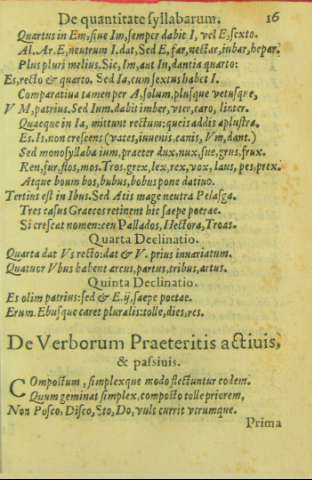 De quantitate syllabarum. 16
Quartus in Em, siue Im, semper dabit I, vel E, sexto.
Al. Ar. E, neutrum I. dat, Sed E, far, nectar, iubar, hepar.
Plus pluri melius. Sic, Im, aut In, dantia quarto:
Es, recto & quarto. Sed Ia, cum sextus habet I.
Comparatiua tamen per A, solum, plusque vetusque,
V M, patrius. Sed Ium. dabit imber, vter, caro, linter.
Quaeque in Ia, mittunt rectum: queis addis aplustra,
Es. Is. non crescens (vates, iuuenis, canis, Vm, dant.)
Sed monosyllaba ium, praeter dux, nux, sue, grus, frux.
Ren, fur, flos, mos. Tros. grex, lex, rex, vox, laus, pes, prex.
Atque boum bos, bubus, bobus pone datiuo.
Tertius est in Ibus. Sed Atis mage neutra Pelasga.
Tres casus Graecos retinent hic saepe poetae.
Si crescat nomen: ceu Pallados, Hectora, Troas.
Quarta Declinatio.
Quarta dat Vs recto: dat & V. prius inuariatum.
Quatuor Vbus habent arcus, partus, tribus, artus.
Quinta Declinatio.
Es olim patrius: sed & E. ij, saepe poetae.
Erum. Ebusque caret pluralis: tolle, dies, res.
De Verborum Praeteritis actiuis,
& passiuis.
COmpostum, simplexque modo flectuntur eodem.
Quum geminat simplex, composto tolle priorem,
Non Posco, Disco, Sto, Do, vult currit vtrumque.
Prima